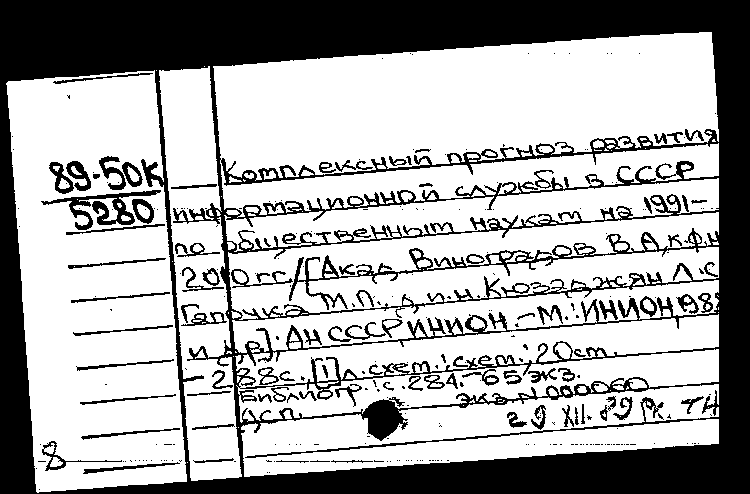 89-50К
5280
Комплексный прогноз развития
информационной службы в СССР
по общественным наукам на 1991-
2010 гг. / [Акад. Виноградов В.А, к.ф.н
Гапочка М.П., д.и.н. Кюзаджян Л.С
и др.]; АН СССР, ИНИОН. - М.: ИНИОН, 1988
- 288 с., [1] л. схем.: схем.; 20 см.
Библиогр.: с. 284. - 65 экз.
ДСП. экз. N 000060
29 XII. 89 РК. ТН
8